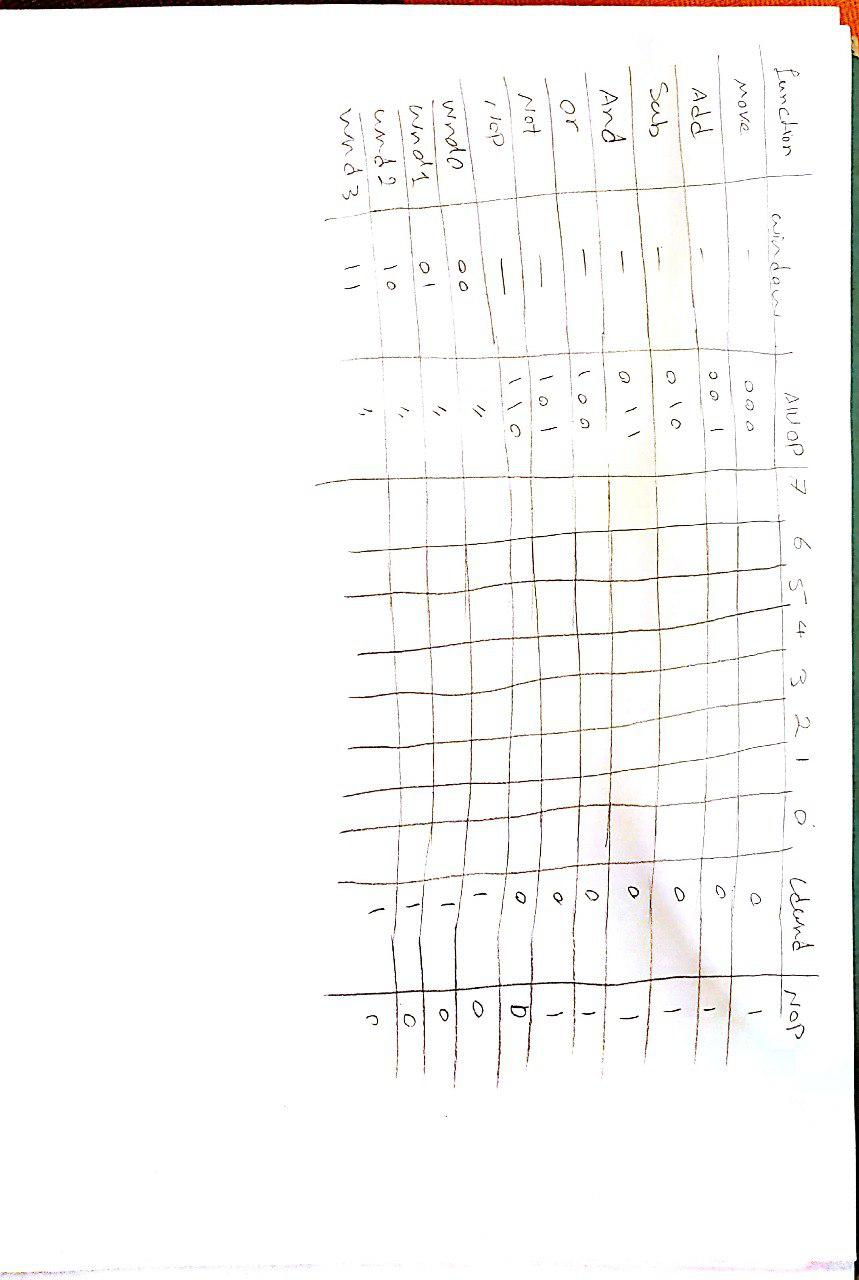 function window AluOP 7 6 5 4 3 2 1 0 Ldwnd NOP
move - 000 0 1
Add - 001 0 1
Sub - 010 0 1
And - 011 0 1
or - 100 0 1
Not - 101 0 1
Nop - 110 0 0
wnd0 00 " 1 0
wnd1 01 " 1 0
wnd2 10 " 1 0
wnd3 11 " 1 0